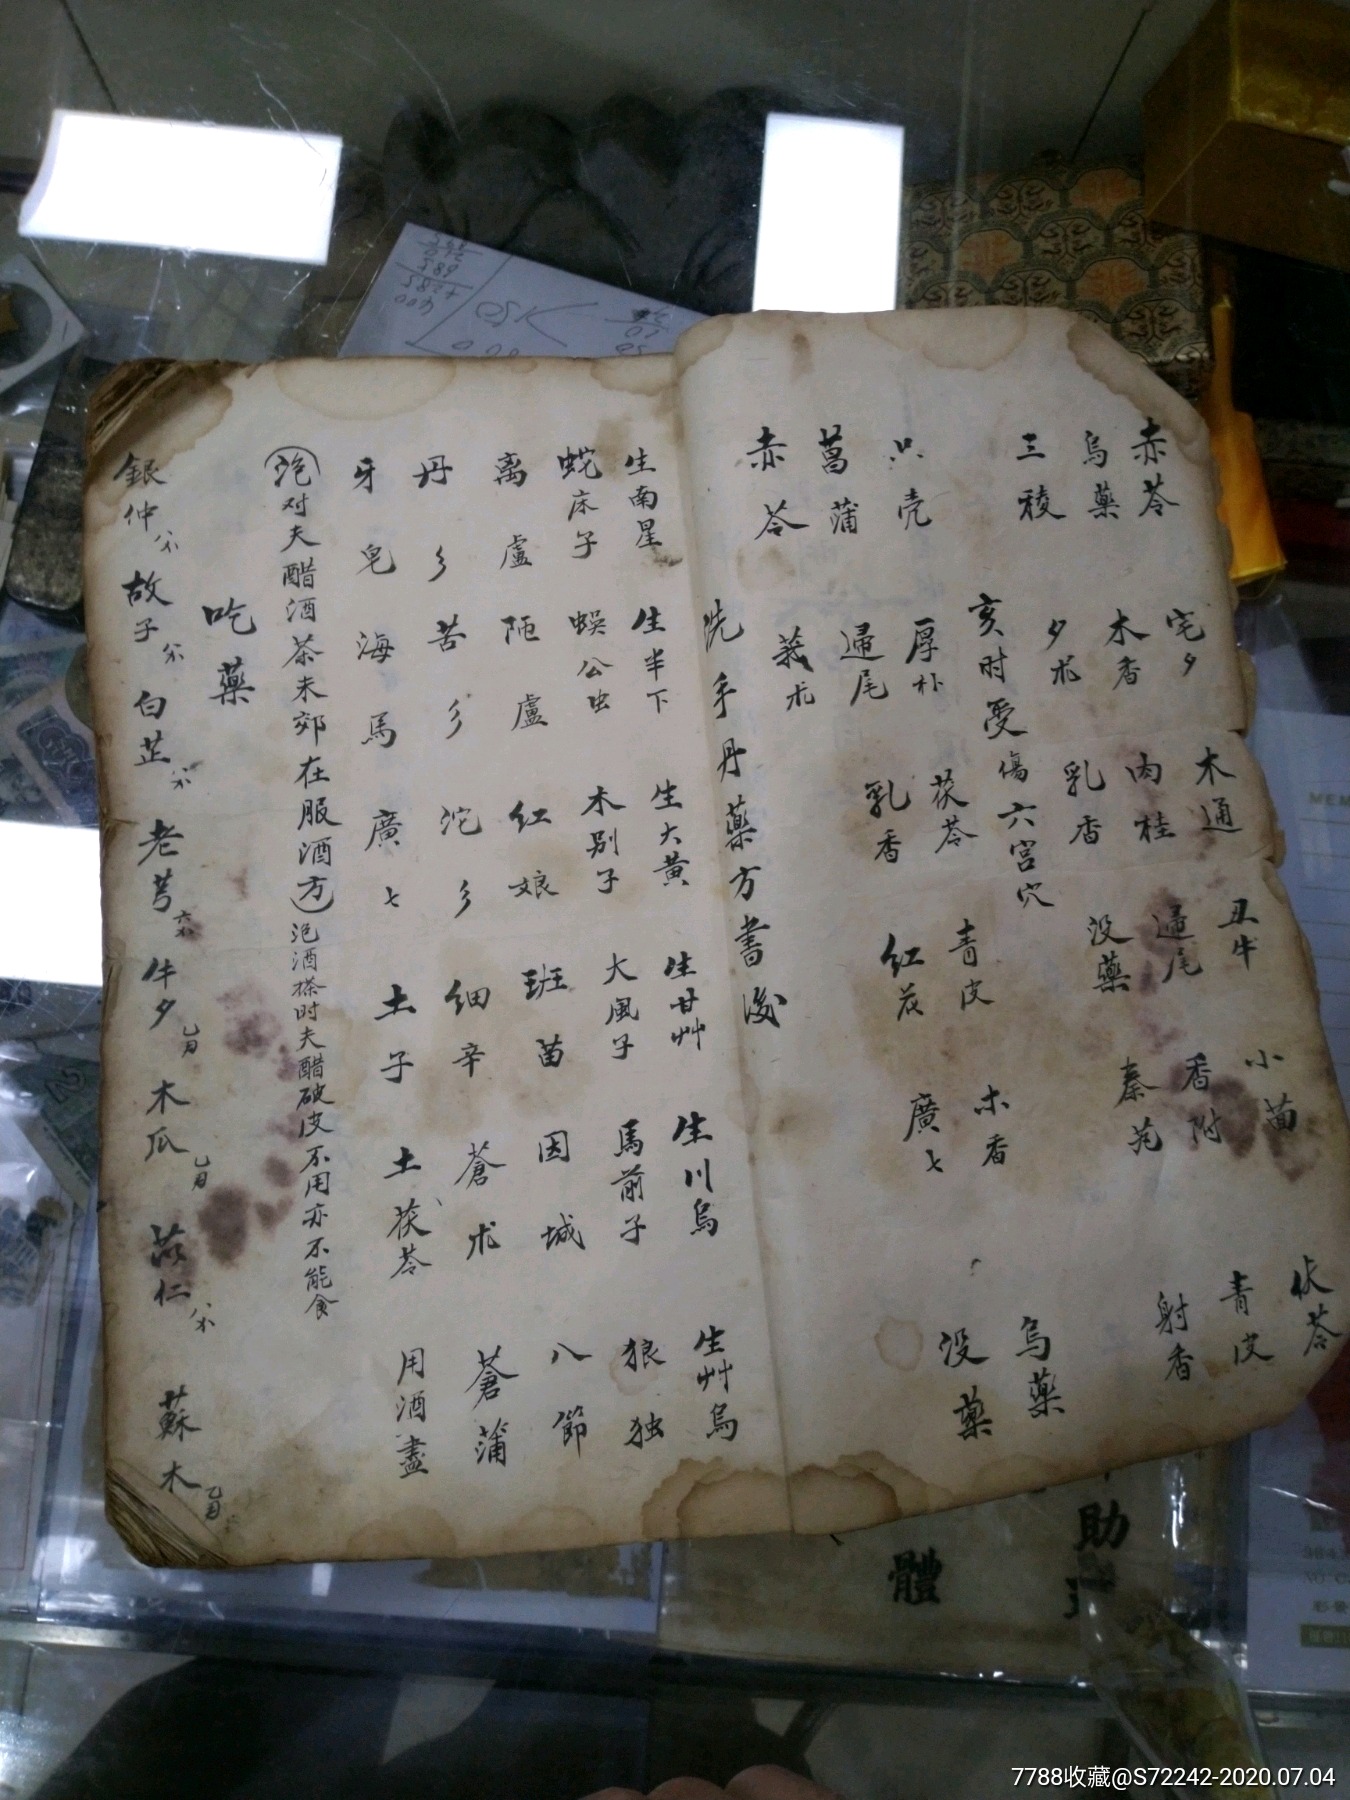 赤苓 宅夕 木通 丑牛 小茴 伏苓
烏藥 木香 肉桂 歸尾 香附 青皮
三稜 夕朮 乳香 没藥 秦艽 射香
亥时受傷六宫穴
只壳 厚朴 茯苓 青皮 木香 烏藥
菖蒲 歸尾 乳香 红花 廣七 没藥
赤苓 莪朮
洗手丹藥方書後
生南星 生半下 生大黄 生甘艸 生川烏 生艸烏
蛇床子 蜈公虫 木别子 大風子 馬前子 狼独
离盧 陋盧 红娘 班苗 因城 八節
丹彡 苦彡 沱彡 细辛 蒼朮 蒼蒲
牙皂 海馬 廣七 土子 土茯苓 用酒盡
泡对夫醋酒茶未郊在服酒方 泡酒搽时夫醋破皮不用亦不能食
吃藥
銀仲 故子 白芷 老芎 牛夕 木瓜 苡仁 蘇木
助
體
7788收藏@S72242-2020.07.04